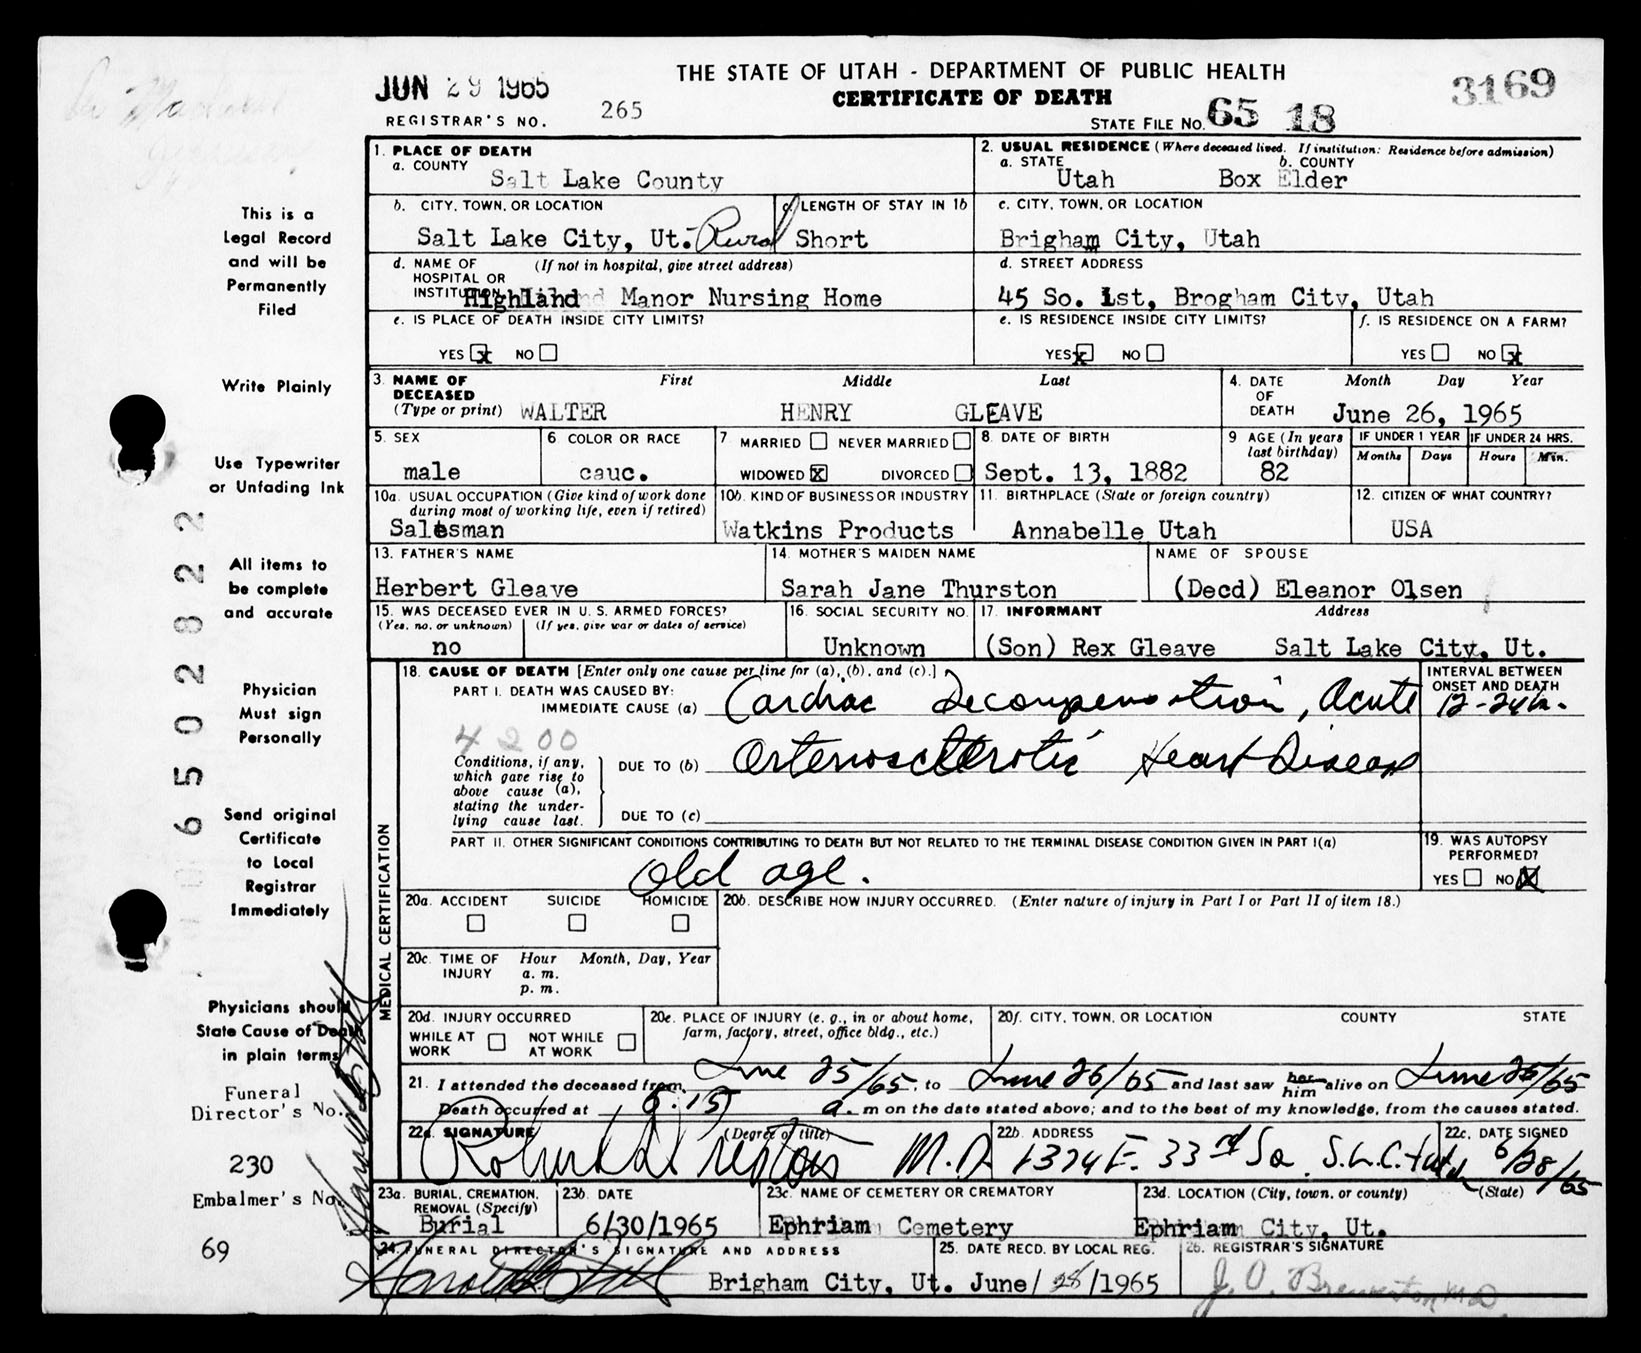 JUN 29 1965
THE STATE OF UTAH - DEPARTMENT OF PUBLIC HEALTH
3169
CERTIFICATE OF DEATH
REGISTRAR'S NO. 265
STATE FILE NO. 65 18
1. PLACE OF DEATH
a. COUNTY
Salt Lake County
2. USUAL RESIDENCE (Where deceased lived. If institution: Residence before admission)
a. STATE b. COUNTY
Utah Box Elder
b. CITY, TOWN, OR LOCATION
Salt Lake City, Ut. Rural
c. LENGTH OF STAY IN 1b
Short
c. CITY, TOWN, OR LOCATION
Brigham City, Utah
d. NAME OF HOSPITAL OR INSTITUTION (If not in hospital, give street address)
Highland Manor Nursing Home
d. STREET ADDRESS
45 So. 1st, Brogham City, Utah
e. IS PLACE OF DEATH INSIDE CITY LIMITS?
YES x NO
e. IS RESIDENCE INSIDE CITY LIMITS?
YES x NO
f. IS RESIDENCE ON A FARM?
YES NO x
3. NAME OF DECEASED (Type or print) First Middle Last
WALTER HENRY GLEAVE
4. DATE OF DEATH Month Day Year
June 26, 1965
5. SEX
male
6 COLOR OR RACE
cauc.
7 MARRIED NEVER MARRIED
WIDOWED x DIVORCED
8. DATE OF BIRTH
Sept. 13, 1882
9 AGE (In years last birthday)
82
IF UNDER 1 YEAR
Months Days
IF UNDER 24 HRS.
Hours Min.
10a. USUAL OCCUPATION (Give kind of work done during most of working life, even if retired)
Salesman
10b. KIND OF BUSINESS OR INDUSTRY
Watkins Products
11. BIRTHPLACE (State or foreign country)
Annabelle Utah
12. CITIZEN OF WHAT COUNTRY?
USA
13. FATHER'S NAME
Herbert Gleave
14. MOTHER'S MAIDEN NAME
Sarah Jane Thurston
NAME OF SPOUSE
(Decd) Eleanor Olsen
15. WAS DECEASED EVER IN U. S. ARMED FORCES?
(Yes, no, or unknown) (If yes, give war or dates of service)
no
16. SOCIAL SECURITY NO.
Unknown
17. INFORMANT Address
(Son) Rex Gleave Salt Lake City, Ut.
MEDICAL CERTIFICATION
18. CAUSE OF DEATH [Enter only one cause per line for (a), (b), and (c).]
INTERVAL BETWEEN ONSET AND DEATH
PART I. DEATH WAS CAUSED BY:
IMMEDIATE CAUSE (a) Cardiac Decompensation, Acute 12-24 h.
4200
Conditions, if any, which gave rise to above cause (a), stating the underlying cause last.
DUE TO (b) Arteriosclerotic Heart Disease
DUE TO (c)
PART II. OTHER SIGNIFICANT CONDITIONS CONTRIBUTING TO DEATH BUT NOT RELATED TO THE TERMINAL DISEASE CONDITION GIVEN IN PART I(a)
Old age.
19. WAS AUTOPSY PERFORMED?
YES NO X
20a. ACCIDENT SUICIDE HOMICIDE
20b. DESCRIBE HOW INJURY OCCURRED. (Enter nature of injury in Part I or Part II of item 18.)
20c. TIME OF INJURY Hour Month, Day, Year
a. m.
p. m.
20d. INJURY OCCURRED
WHILE AT WORK NOT WHILE AT WORK
20e. PLACE OF INJURY (e. g., in or about home, farm, factory, street, office bldg., etc.)
20f. CITY, TOWN, OR LOCATION COUNTY STATE
21. I attended the deceased from June 25/65, to June 26/65 and last saw her him alive on June 26/65
Death occurred at 6:15 a. m on the date stated above; and to the best of my knowledge, from the causes stated.
22a. SIGNATURE (Degree or title)
M.D.
22b. ADDRESS
1374 E. 33rd So. S.L.C. Utah
22c. DATE SIGNED
6/28/65
23a. BURIAL, CREMATION, REMOVAL (Specify)
Burial
23b. DATE
6/30/1965
23c. NAME OF CEMETERY OR CREMATORY
Ephriam Cemetery
23d. LOCATION (City, town, or county) (State)
Ephriam City, Ut.
24. FUNERAL DIRECTOR'S SIGNATURE AND ADDRESS
Brigham City, Ut.
25. DATE RECD. BY LOCAL REG.
June/28/1965
26. REGISTRAR'S SIGNATURE
This is a
Legal Record
and will be
Permanently
Filed
Write Plainly
Use Typewriter
or Unfading Ink
All items to
be complete
and accurate
Physician
Must sign
Personally
Send original
Certificate
to Local
Registrar
Immediately
Physicians should
State Cause of Death
in plain terms
Funeral
Director's No.
230
Embalmer's No.
69
650 2822